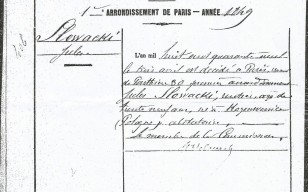 1er ARRONDISSEMENT DE PARIS — ANNÉE 1849
Slowacki
Jules
L'en mil huit cent quarante neuf
le trois avril est décédé à Paris, rue
de Ponthieu 30 premier arrondissement
Jules Slowacki, âgé de
trente neuf ans, né à
Pologne, célibataire
Le membre de la Commission,